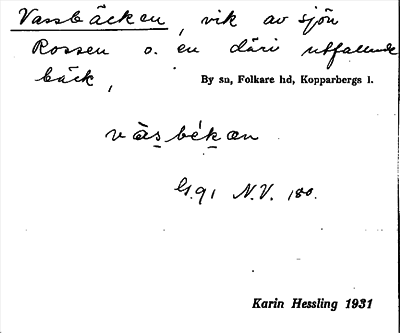 Vassbäcken, vik av sjön
Rossen o. en däri utfallande
bäck,
By sn, Folkare hd, Kopparbergs l.
vàs bék æn
G. 91 N.V. 180.
Karin Hessling 1931